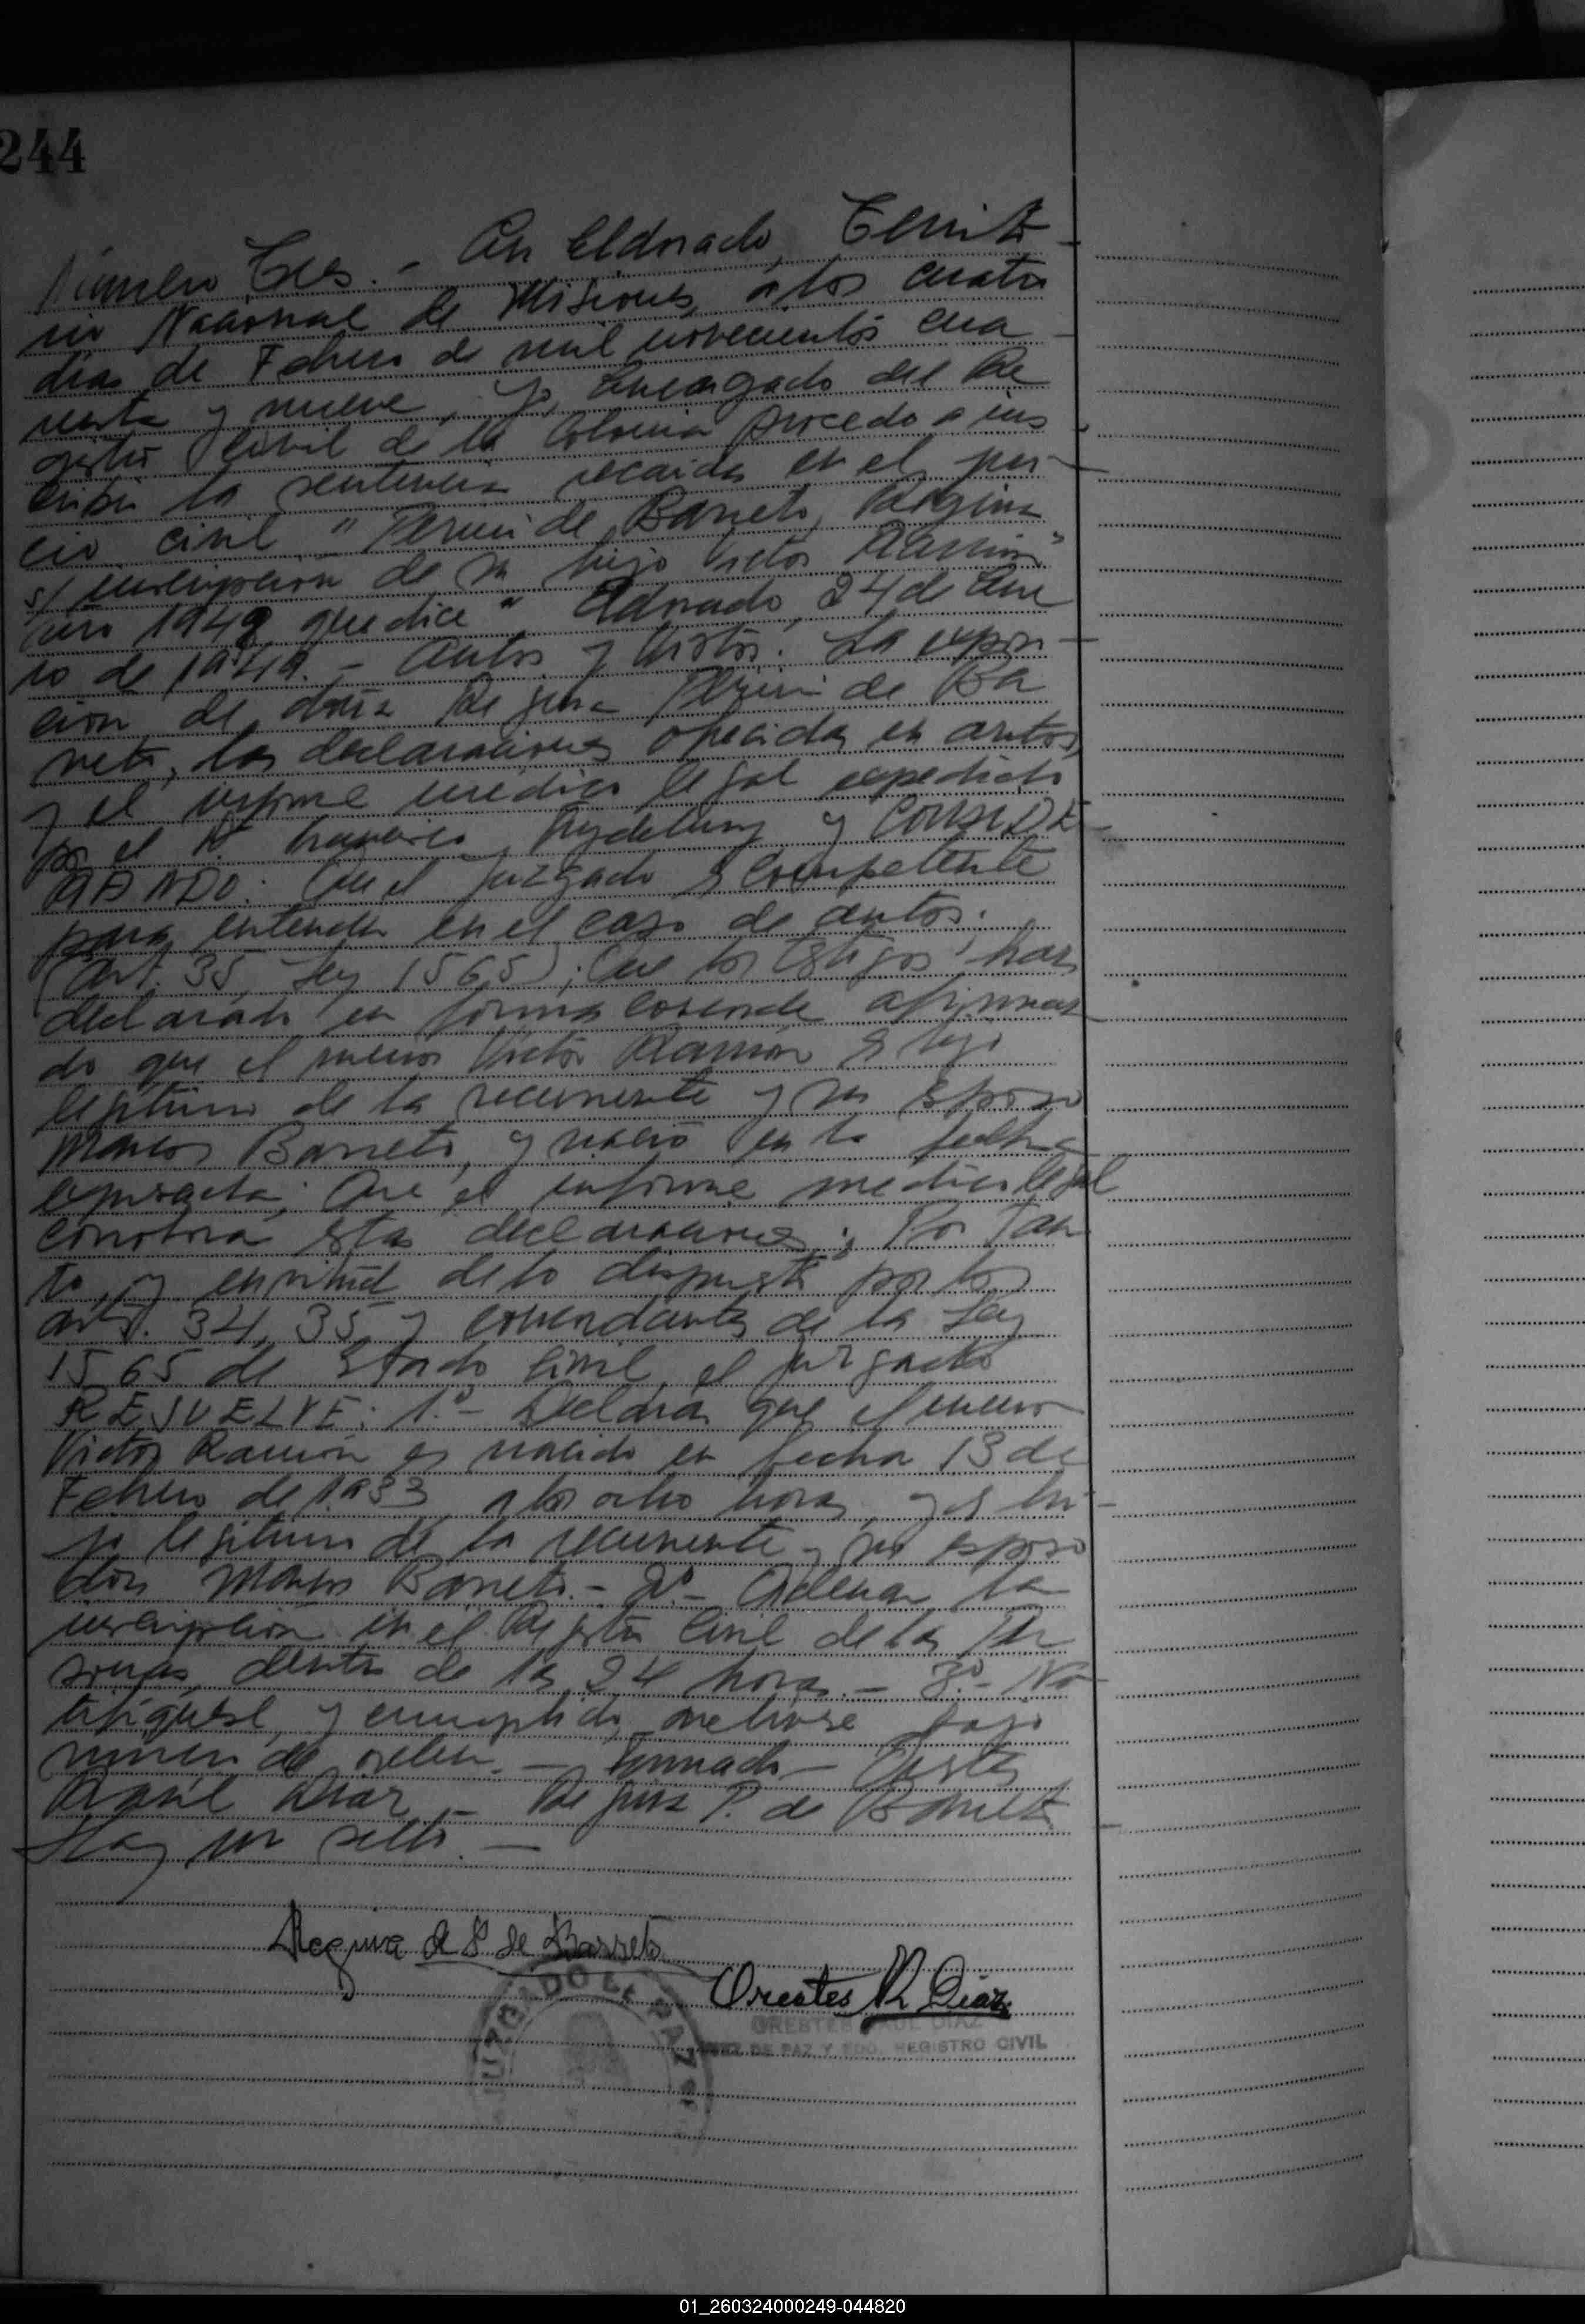 244
Número Tres. - En Eldorado, Territo-
rio Nacional de Misiones, a los cuatro
días de Febrero de mil novecientos cua
renta y nueve, Yo, Encargado del Re
gistro Civil de la Colonia procedo a ins
cribir la sentencia recaída en el jui-
cio civil "Perini de Barreto, Regina
s/ inscripción de su hijo Víctor Ramón"
año 1949 que dice " Eldorado, 24 de Ene
ro de 1949. - Autos y Vistos: La exposi-
ción de doña Regina Perini de Ba
rreto, las declaraciones ofrecidas en autos,
y el informe médico legal expedido
por el Dr y CONSIDE-
RANDO: Que el Juzgado es competente
para entender en el caso de autos;
(Art. 35, Ley 1565); Que los testigos han
declarado en forma afirman
do que el menor Víctor Ramón es hijo
legítimo de la recurrente y su esposo
Marcos Barreto, y nació en la fecha
expresada; Que el informe médico legal
corrobora estas declaraciones; Por tan
to, y en virtud de lo dispuesto por los
arts. 34, 35, y concordantes de la Ley
1565 de Estado Civil, el juzgado
RESUELVE: 1.º- Declarar que el menor
Víctor Ramón es nacido en fecha 13 de
Febrero de 1.933 a las ocho horas, y es hi-
jo legítimo de la recurrente y su esposo
don Marcos Barreto. - 2º- Ordenar la
inscripción en el Registro Civil de las Per
sonas, dentro de las 24 horas. - 3º.- No
tifíquese, y cumplido, archívese bajo
número de orden. - Firmado - Orestes
Raúl Díaz, - Regina P. de Barreto.
Hay un sello. -
Regina d P de Barreto
Orestes R Díaz
JUZGADO DE PAZ
ORESTES RAUL DIAZ
JUEZ DE PAZ Y EDO. REGISTRO CIVIL
01_260324000249-044820